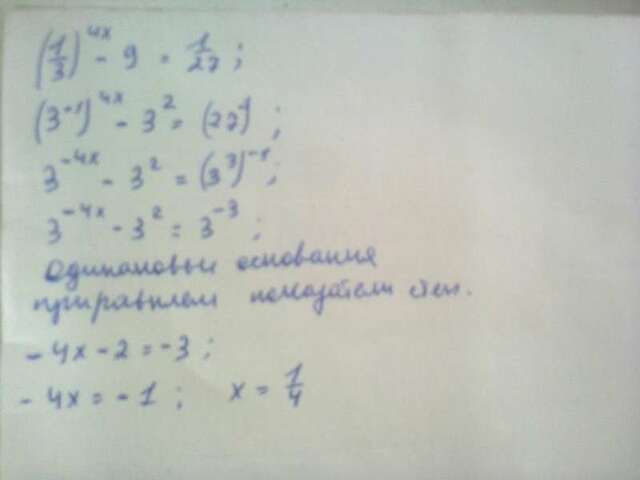 (1/3)^4x - 9 = 1/27;
(3^-1)^4x - 3^2 = (27)^-1;
3^-4x - 3^2 = (3^3)^-1;
3^-4x - 3^2 = 3^-3;
одинановые основания
приравняем показатели степ.
-4x - 2 = -3;
-4x = -1; x = 1/4